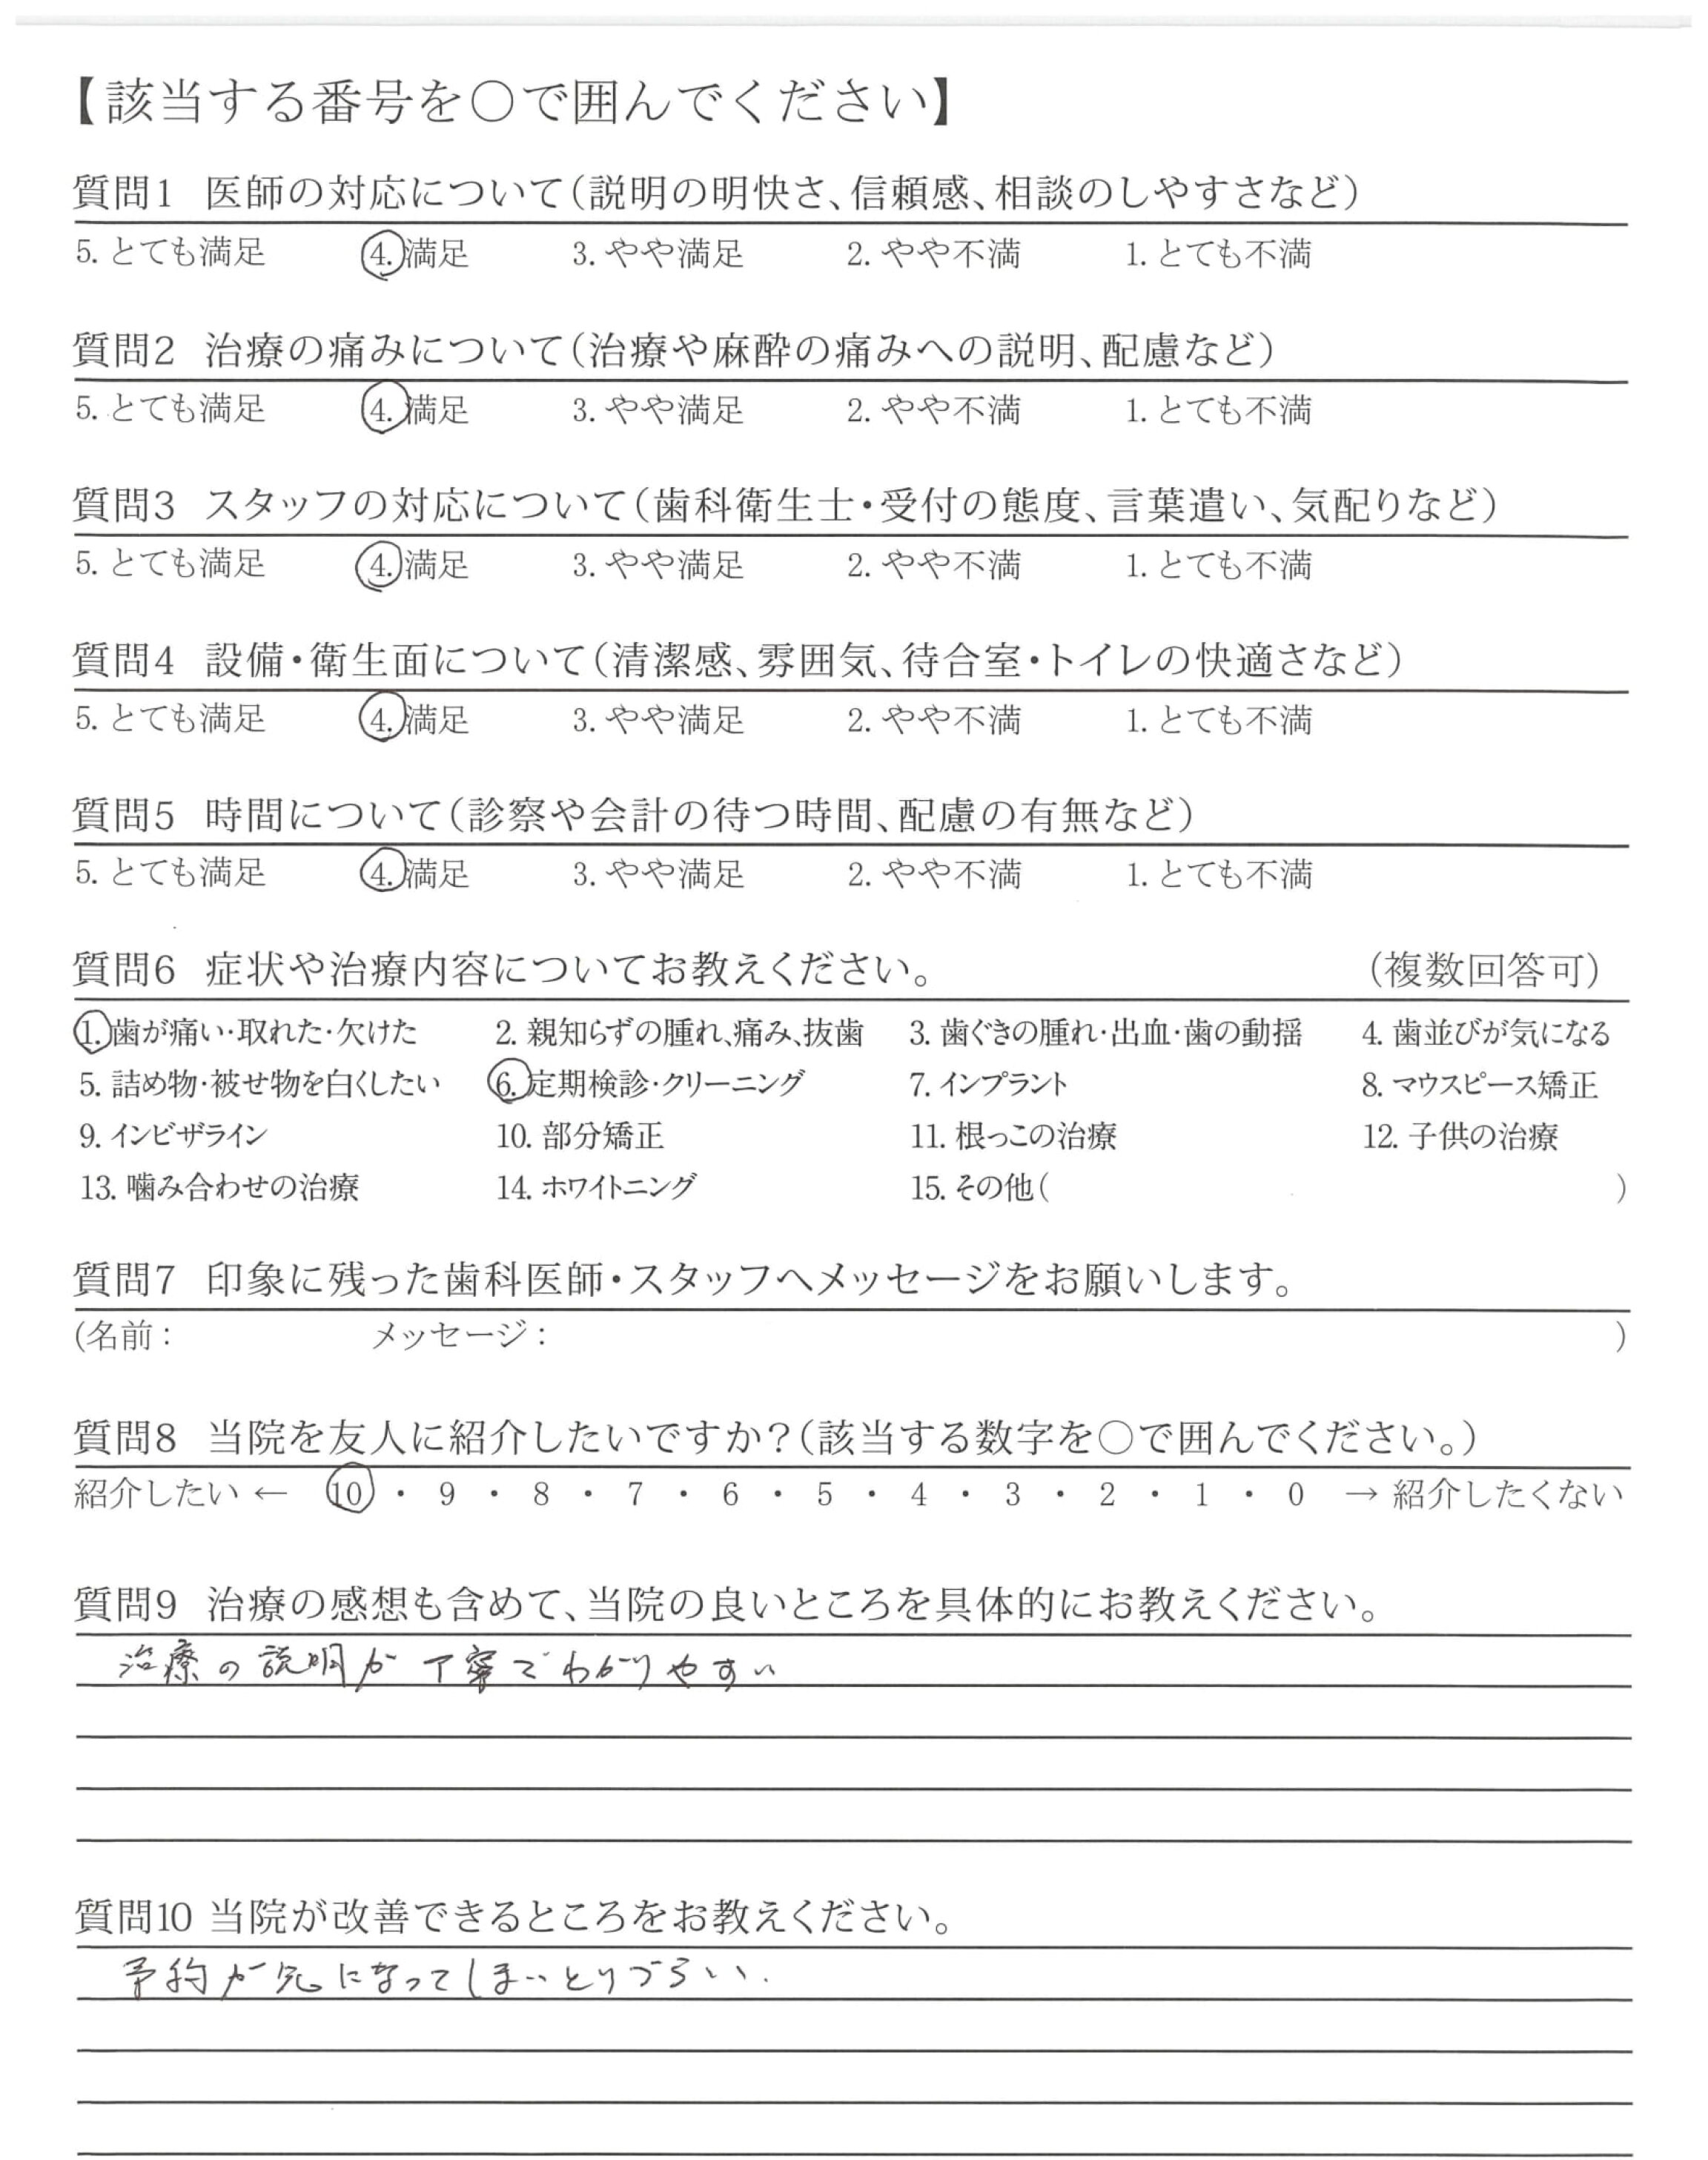 【該当する番号を〇で囲んでください】
質問1 医師の対応について(説明の明快さ、信頼感、相談のしやすさなど)
5. とても満足 4. 満足 3. やや満足 2. やや不満 1. とても不満
質問2 治療の痛みについて(治療や麻酔の痛みへの説明、配慮など)
5. とても満足 4. 満足 3. やや満足 2. やや不満 1. とても不満
質問3 スタッフの対応について(歯科衛生士・受付の態度、言葉遣い、気配りなど)
5. とても満足 4. 満足 3. やや満足 2. やや不満 1. とても不満
質問4 設備・衛生面について(清潔感、雰囲気、待合室・トイレの快適さなど)
5. とても満足 4. 満足 3. やや満足 2. やや不満 1. とても不満
質問5 時間について(診察や会計の待つ時間、配慮の有無など)
5. とても満足 4. 満足 3. やや満足 2. やや不満 1. とても不満
質問6 症状や治療内容についてお教えください。 (複数回答可)
1. 歯が痛い・取れた・欠けた 2. 親知らずの腫れ、痛み、抜歯 3. 歯ぐきの腫れ・出血・歯の動揺 4. 歯並びが気になる
5. 詰め物・被せ物を白くしたい 6. 定期検診・クリーニング 7. インプラント 8. マウスピース矯正
9. インビザライン 10. 部分矯正 11. 根っこの治療 12. 子供の治療
13. 噛み合わせの治療 14. ホワイトニング 15. その他( )
質問7 印象に残った歯科医師・スタッフへメッセージをお願いします。
(名前： メッセージ： )
質問8 当院を友人に紹介したいですか？(該当する数字を〇で囲んでください。)
紹介したい ← 10 ・ 9 ・ 8 ・ 7 ・ 6 ・ 5 ・ 4 ・ 3 ・ 2 ・ 1 ・ 0 → 紹介したくない
質問9 治療の感想も含めて、当院の良いところを具体的にお教えください。
治療の説明が丁寧でわかりやすい
質問10 当院が改善できるところをお教えください。
予約が先になってしまいとりづらい.